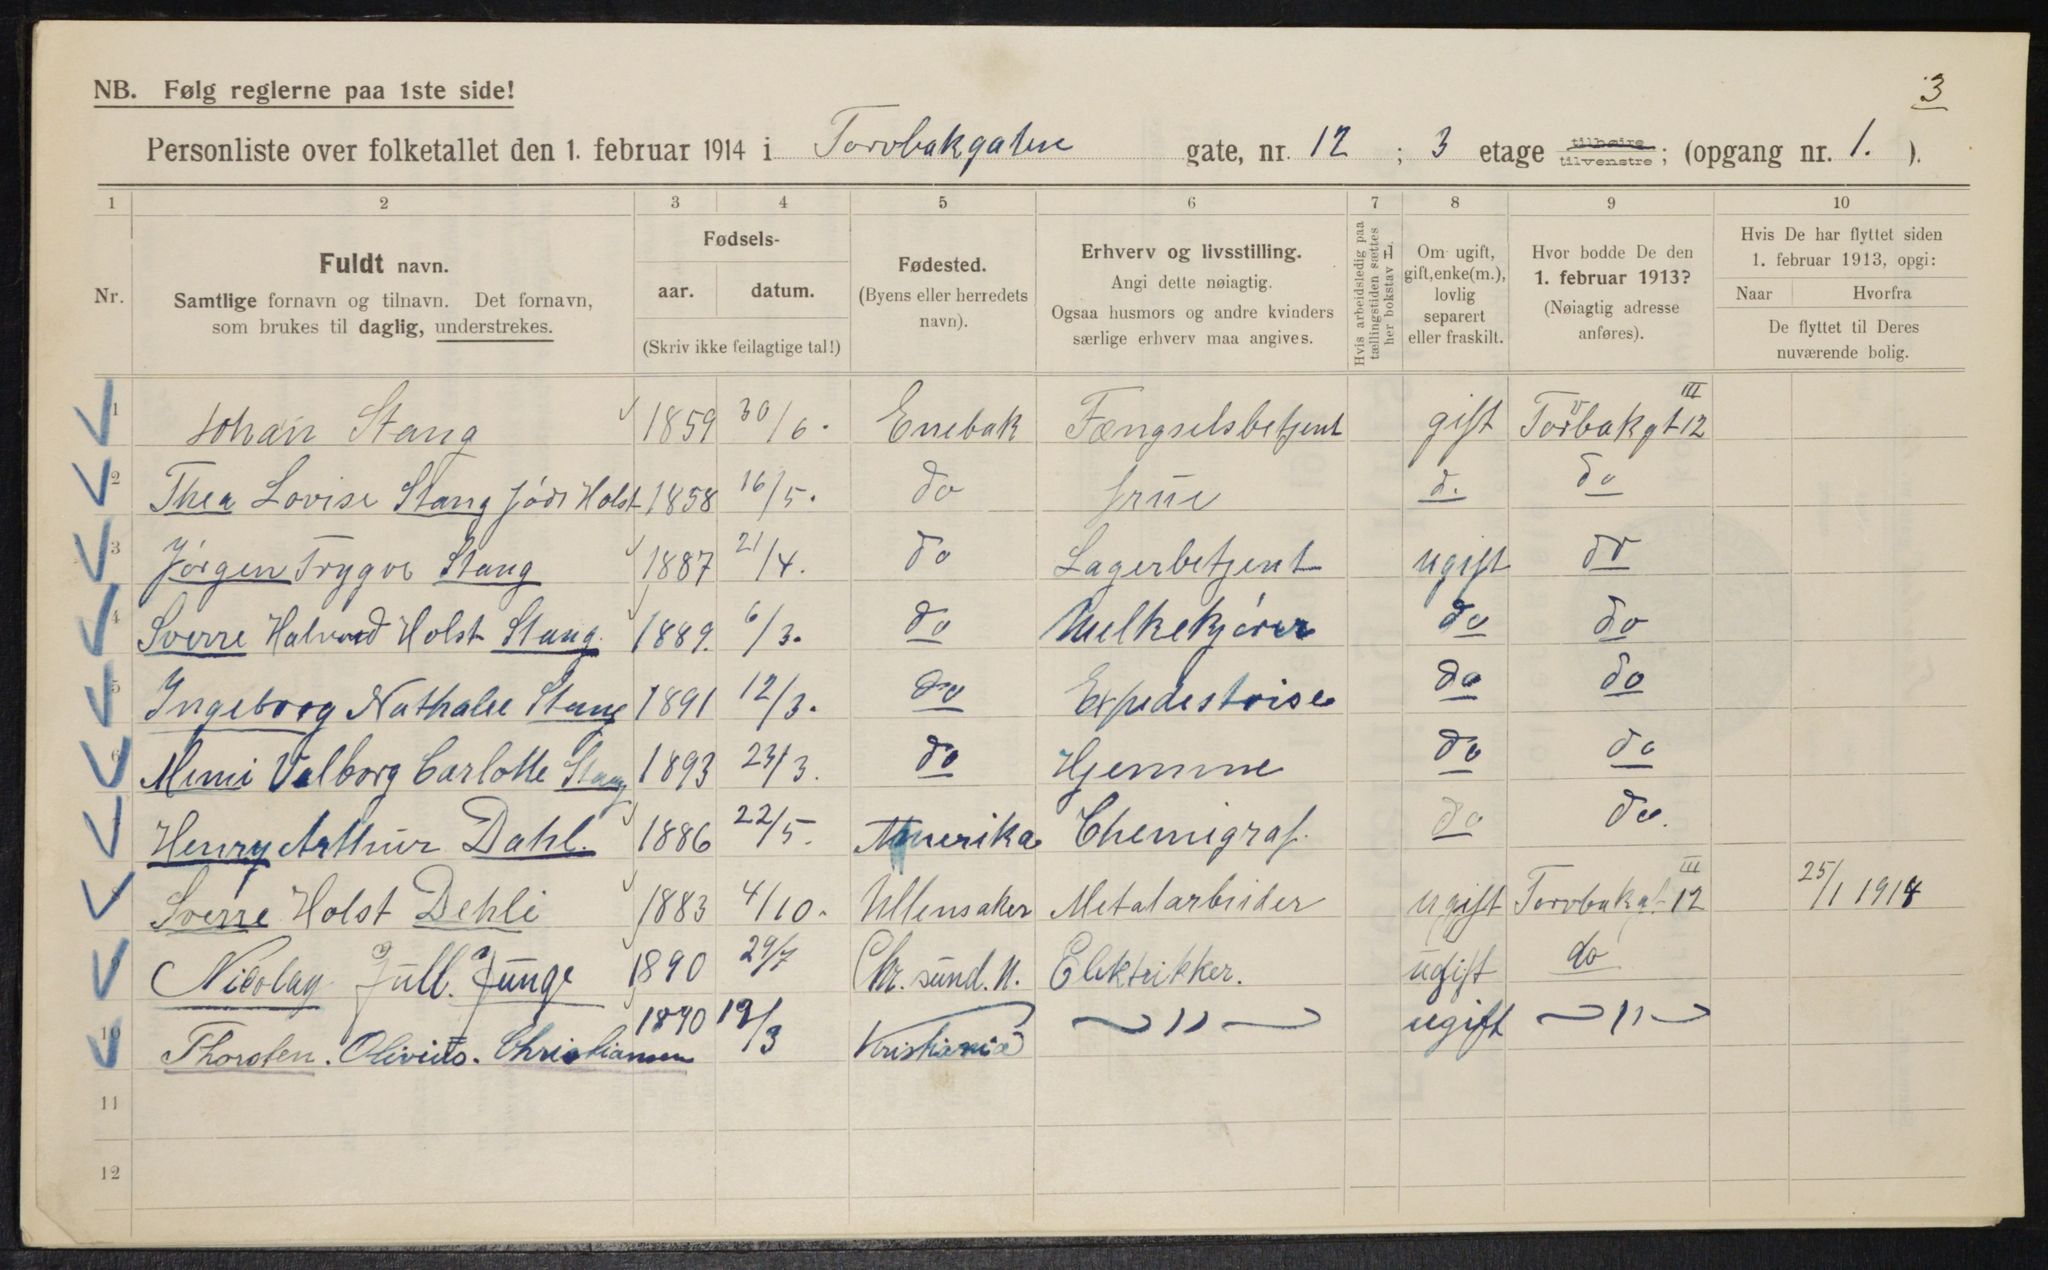 3
NB. Følg reglerne paa 1ste side!
Personliste over folketallet den 1. februar 1914 i Torvbakgaten gate, nr. 12 ; 3 etage tilhøire tilvenstre ; (opgang nr. 1. ).
1 2 3 4 5 6 7 8 9 10
Nr.
Fuldt navn.
Samtlige fornavn og tilnavn. Det fornavn,
som brukes til daglig, understrekes.
Fødsels-
aar. datum.
(Skriv ikke feilagtige tal!)
Fødested.
(Byens eller herredets
navn).
Erhverv og livsstilling.
Angi dette nøiagtig.
Ogsaa husmors og andre kvinders
særlige erhverv maa angives.
Hvis arbeidsledig paa
tællingstiden sættes
her bokstav L
Om ugift,
gift, enke(m.),
lovlig
separert
eller fraskilt.
Hvor bodde De den
1. februar 1913?
(Nøiagtig adresse
anføres).
Hvis De har flyttet siden
1. februar 1913, opgi:
Naar Hvorfra
De flyttet til Deres
nuværende bolig.
1 Johan Stang 1859 30/6. Enebak Fængselsbetjent gift Torvbakgt 12 III
2 Thea Lovise Stang född Holst 1858 16/5. do frue d. do
3 Jørgen Trygve Stang 1887 21/4. do Lagerbetjent ugift do
4 Sverre Halvord Holst Stang. 1889. 6/3. do Melkekjører do do
5 Ingeborg Nathalie Stang 1891 12/3. do Expedistrise do do
6 Mimi Valborg Carlotte Stang 1893 23/3. do Hjemme do do
7 Henry Arthur Dahl. 1886 22/5. Amerika Chemigraf. do do.
8 Sverre Holst Dehli 1883 4/10. Ullensaker Metalarbeider ugift Torvbakgt 12 III 25/1 1914
9 Nicolay Jull. Junge 1890 29/7 Chr. sund. N. Elektrikker. ugift do
10 Thorolen. Olivius. Christiansen 1890 19/3 Kristiania — 11 — ugift — 11 —
11
12